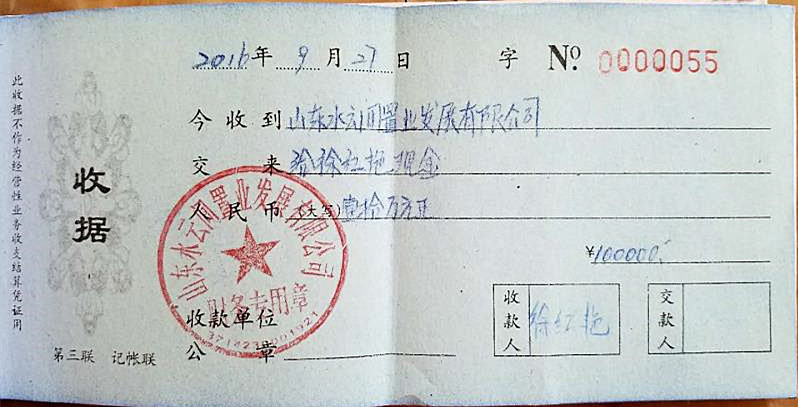 2016年9月27日 字 No. 0000055
此收据不作为经营性业务收支结算凭证用
收据
今收到山东水云间置业发展有限公司
交来给徐红艳现金
人民币(大写)壹拾万元正
¥100000.
山东水云间置业发展有限公司
财务专用章
收款单位
公章
收款人 徐红艳
交款人
第三联 记帐联